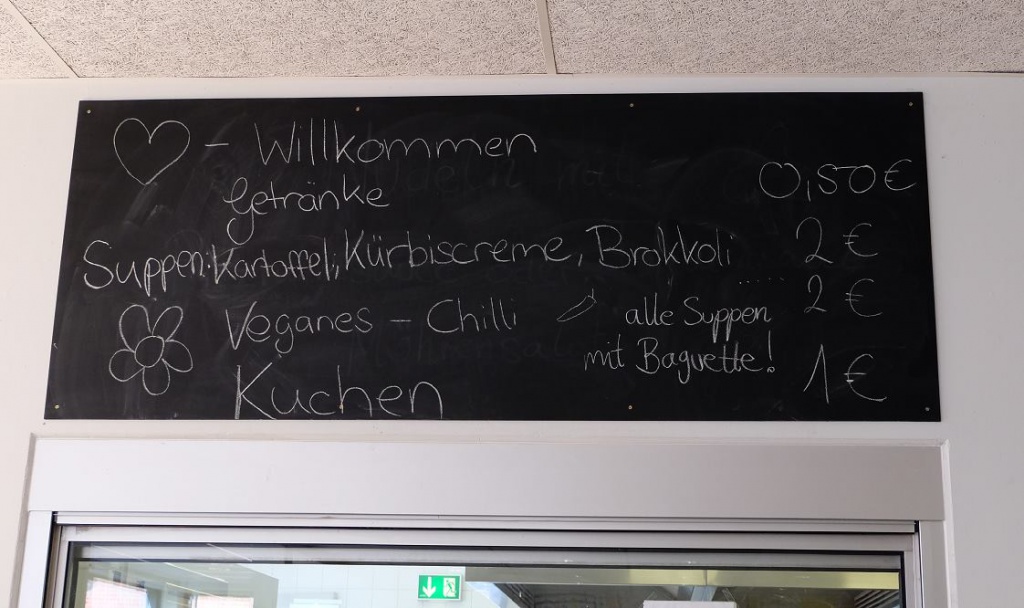 - Willkommen
Getränke 0,50€
Suppen: Kartoffel, Kürbiscreme, Brokkoli 2€
Veganes - Chilli 2€
alle Suppen
mit Baguette!
Kuchen 1€